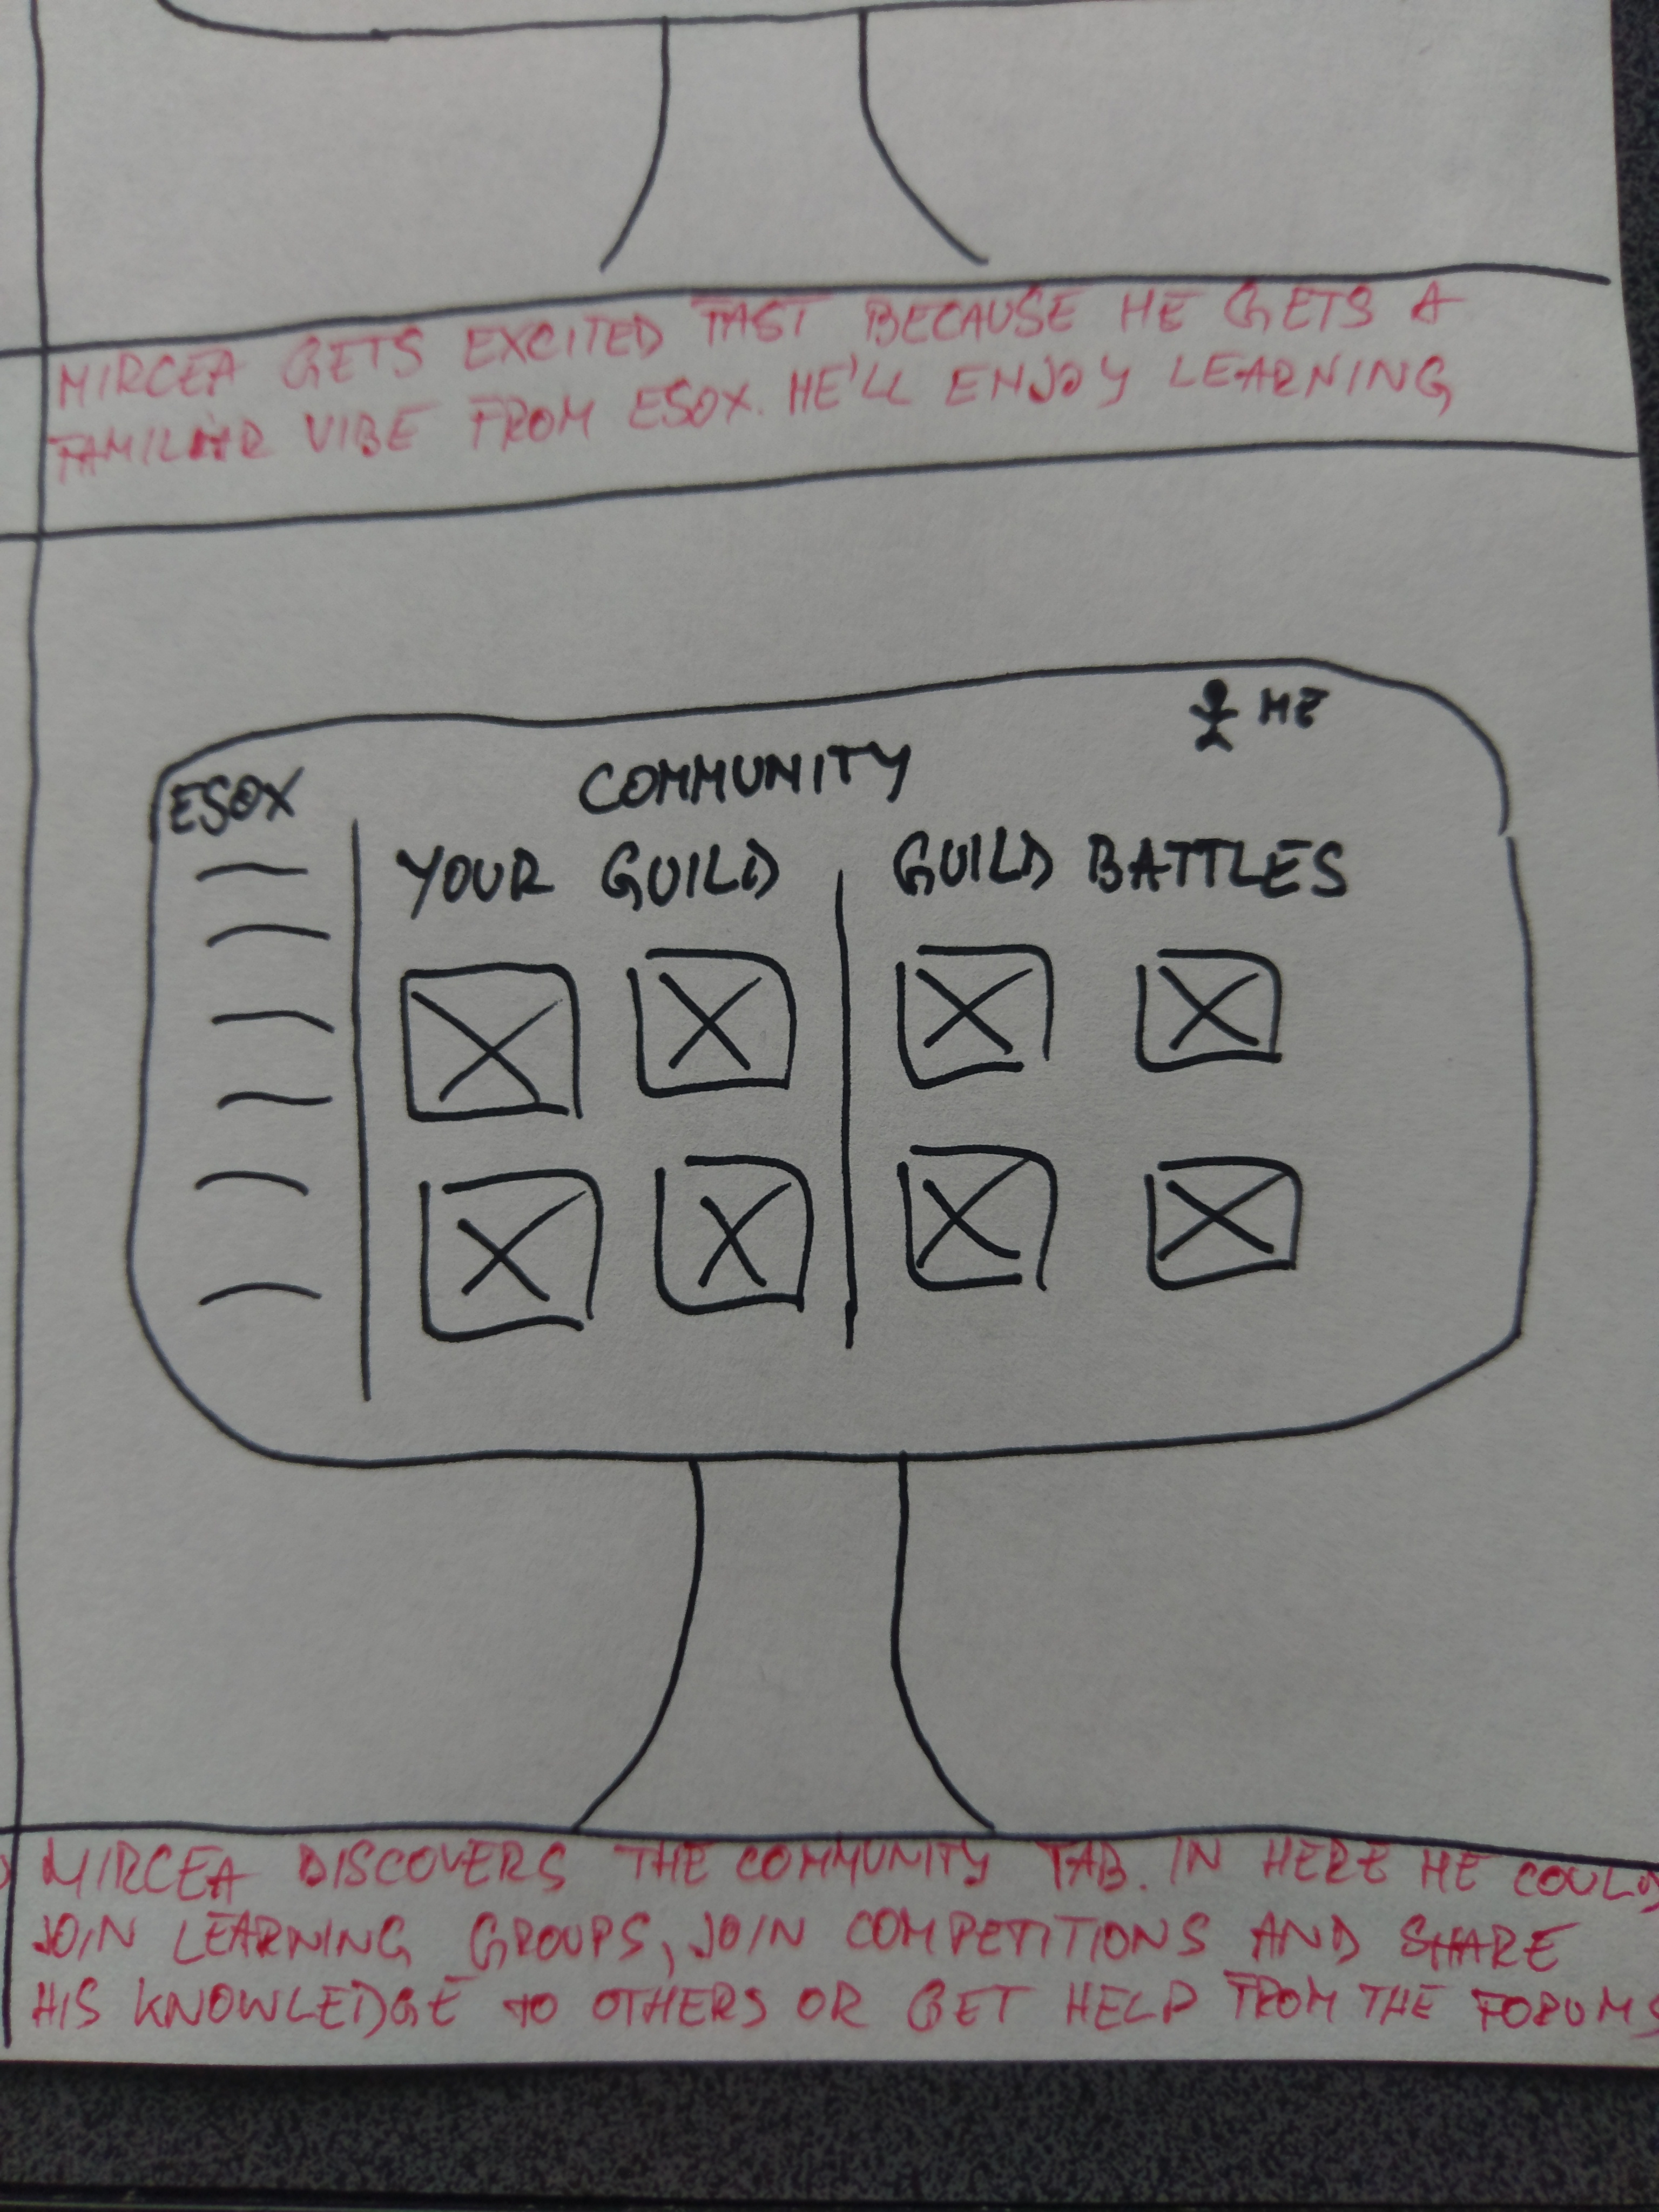 MIRCEA GETS EXCITED FAST BECAUSE HE GETS A
FAMILIAR VIBE FROM ESOX. HE'LL ENJOY LEARNING
ME
ESOX
COMMUNITY
YOUR GUILD
GUILD BATTLES
MIRCEA DISCOVERS THE COMMUNITY TAB. IN HERE HE COULD
JOIN LEARNING GROUPS, JOIN COMPETITIONS AND SHARE
HIS KNOWLEDGE TO OTHERS OR GET HELP FROM THE FORUMS